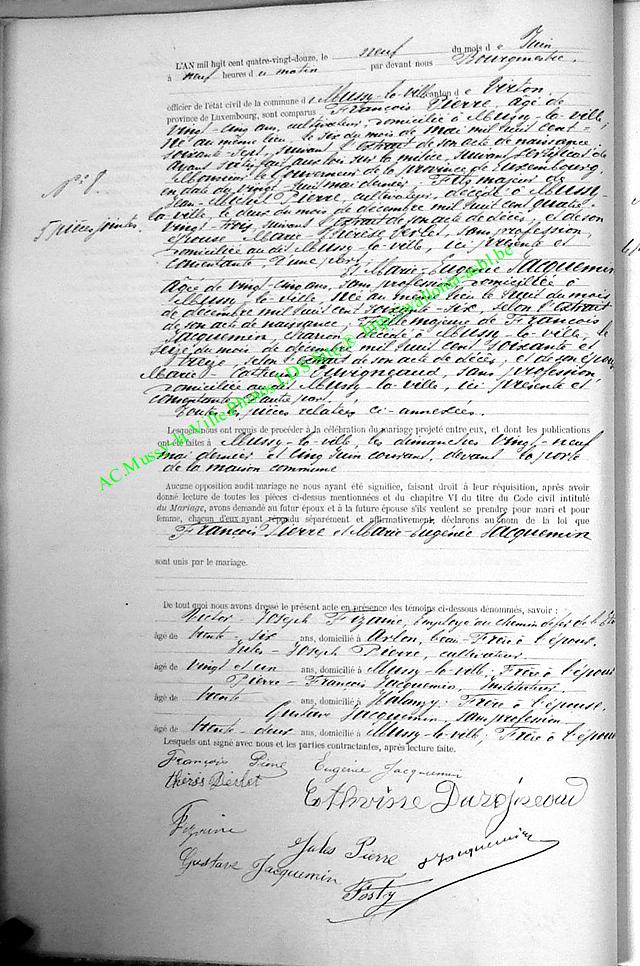 L'AN mil huit cent quatre-vingt-douze, le neuf du mois de Juin
à neuf heures du matin par devant nous Bourgmestre,
officier de l'état civil de la commune de Mussy-la-ville canton de Virton,
province de Luxembourg, sont comparus François Pierre, âgé de
vingt-cinq ans, cultivateur, domicilié à Mussy-la-ville,
né au même lieu, le six du mois de mai mil huit cent
soixante-sept, suivant l'extrait de son acte de naissance
ayant satisfait aux lois sur la milice, suivant certificat de
Monsieur le Gouverneur de la province de Luxembourg,
N° 9
en date du vingt-huit mai dernier. Fils majeur de
Jean-Michel Pierre, cultivateur, décédé à Mussy-
la-ville, le deux du mois de décembre mil huit cent quatre-
5 pièces jointes.
vingt-trois, suivant l'extrait de son acte de décès, et de son
épouse Marie-Thérèse, sans profession,
domiciliée au dit Mussy-la-ville, ici présente et
consentante, d'une part.
Et Marie-Eugénie Jacquemin
âgée de vingt-cinq ans, sans profession, domiciliée à
Mussy-la-ville, née au même lieu le huit du mois
de décembre mil huit cent soixante-six, selon l'extrait
de son acte de naissance, fille majeure de François
Jacquemin, charron, décédé à Mussy-la-ville, le
du mois de décembre mil huit cent soixante et
treize, selon l'extrait de son acte de décès, et de son épouse
Marie-, sans profession
domiciliée au dit Mussy-la-ville, ici présente et
consentante, d'autre part.
Toutes les pièces relatées ci-annexées.
Lesquels nous ont requis de procéder à la célébration du mariage projeté entre eux, et dont les publications
ont été faites à Mussy-la-ville, les dimanches vingt-neuf
mai dernier et cinq juin courant, devant la porte
de la maison commune
Aucune opposition audit mariage ne nous ayant été signifiée, faisant droit à leur réquisition, après avoir
donné lecture de toutes les pièces ci-dessus mentionnées et du chapitre VI du titre du Code civil intitulé
du Mariage, avons demandé au futur époux et à la future épouse s'ils veulent se prendre pour mari et pour
femme, chacun d'eux ayant répondu séparément et affirmativement, déclarons au nom de la loi que
François Pierre et Marie-Eugénie Jacquemin
sont unis par le mariage.
De tout quoi nous avons dressé le présent acte en présence des témoins ci-dessous dénommés, savoir :
Victor-Joseph, Employé au chemin de fer de l'
âgé de trente-six ans, domicilié à Arlon, beau-Frère à l'épous.
Jules-Joseph Pierre, cultivateur
âgé de vingt et un ans, domicilié à Mussy-la-ville; Frère à l'épou
Pierre-François Jacquemin, Instituteur,
âgé de trente ans, domicilié à Halanzy; Frère à l'épouse.
Gustave Jacquemin, sans profession
âgé de trente-deux ans, domicilié à Mussy-la-ville; Frère à l'épou
Lesquels ont signé avec nous et les parties contractantes, après lecture faite.
François Pierre Eugénie Jacquemin
thérès
Jules Pierre Jacquemin
Gustave Jacquemin
Fosty
AC.Mussy-la-Ville Photos J.DS Site : http://wallonia-asbl.be